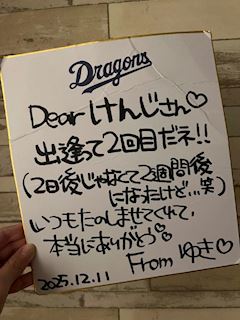 Dragons
Dear けんじさん♡
出逢って2回目だネ!!
(2日後じゃなくて2週間後
になったけど…笑)
いつもたのしませてくれて、
本当にありがとう♡
From ゆき♡
2025.12.11